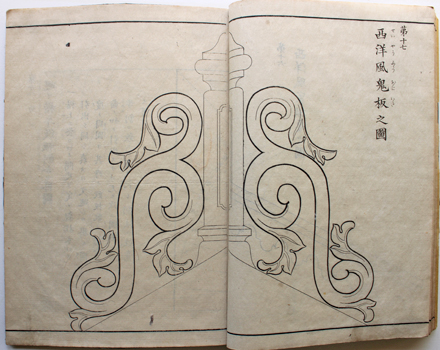 第十七
西洋風鬼板之圖